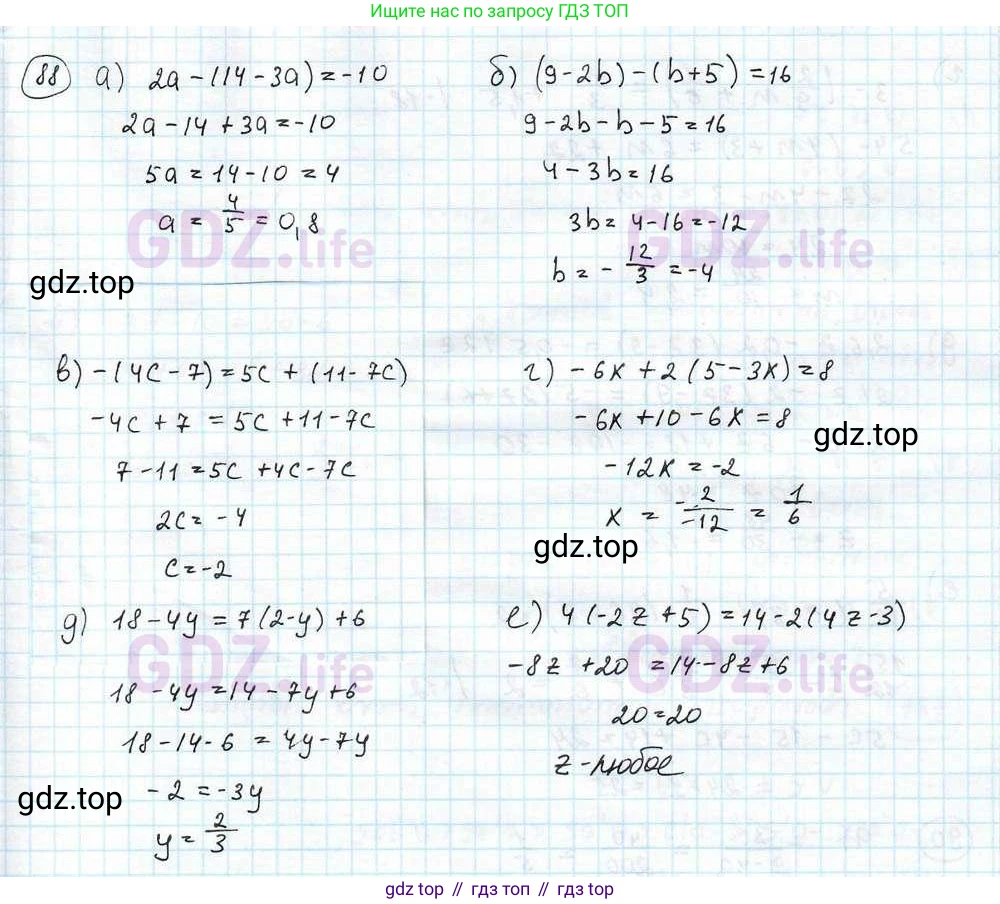 Ищите ответы по запросу ГДЗ ТОП
88 а) 2a - (14 - 3a) = -10
2a - 14 + 3a = -10
5a = 14 - 10 = 4
a = 4/5 = 0,8
б) (9 - 2b) - (b + 5) = 16
9 - 2b - b - 5 = 16
4 - 3b = 16
3b = 4 - 16 = -12
b = - 12/3 = -4
GDZ.life
GDZ.life
gdz.top
в) -(4c - 7) = 5c + (11 - 7c)
-4c + 7 = 5c + 11 - 7c
7 - 11 = 5c + 4c - 7c
2c = -4
c = -2
г) -6x + 2(5 - 3x) = 8
-6x + 10 - 6x = 8
-12x = -2
x = -2/-12 = 1/6
gdz.top
gdz.top
д) 18 - 4y = 7(2 - y) + 6
18 - 4y = 14 - 7y + 6
18 - 14 - 6 = 4y - 7y
-2 = -3y
y = 2/3
е) 4(-2z + 5) = 14 - 2(4z - 3)
-8z + 20 = 14 - 8z + 6
20 = 20
z - любое
GDZ.life
GDZ.life
gdz.top
gdz top // гдз топ // gdz top